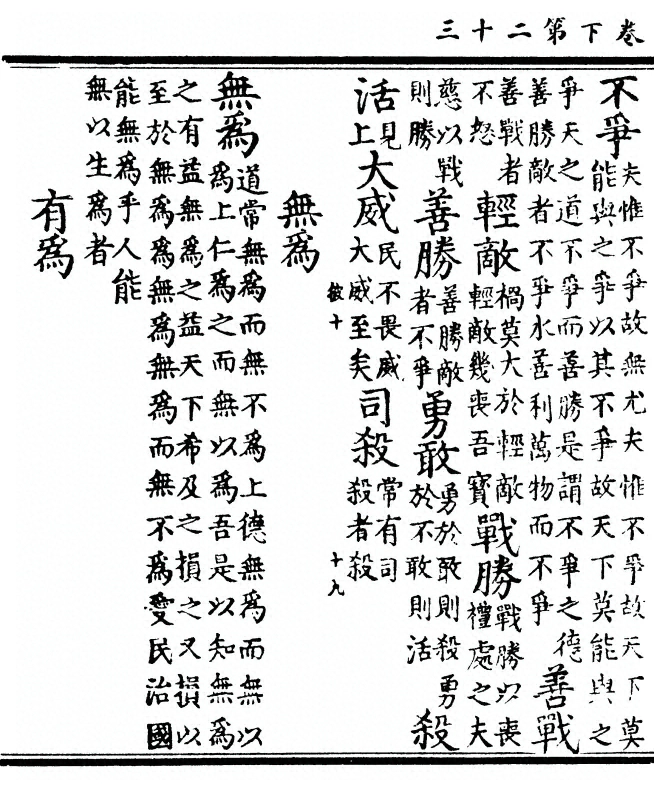 卷下第二十三
不爭
夫惟不爭故無尤夫惟不爭故天下莫
能與之爭以其不爭故天下莫能與之
爭天之道不爭而善勝是謂不爭之德
善勝敵者不爭水善利萬物而不爭
善戰
善戰者
不怒
輕敵
禍莫大於輕敵
輕敵幾喪吾寶
戰勝
戰勝以喪
禮處之夫
慈以戰
則勝
善勝
善勝敵
者不爭
勇敢
勇於敢則殺勇
於不敢則活
殺
活
見
上
大威
民不畏威
大威至矣
司殺
常有司
殺者殺
十
十九
無爲
無爲
道常無爲而無不爲上德無爲而無以
爲上仁爲之而無以爲吾是以知無爲
之有益無爲之益天下希及之損之又損以
至於無爲爲無爲無爲而無不爲愛民治國
能無爲乎人能
無以生爲者
有爲